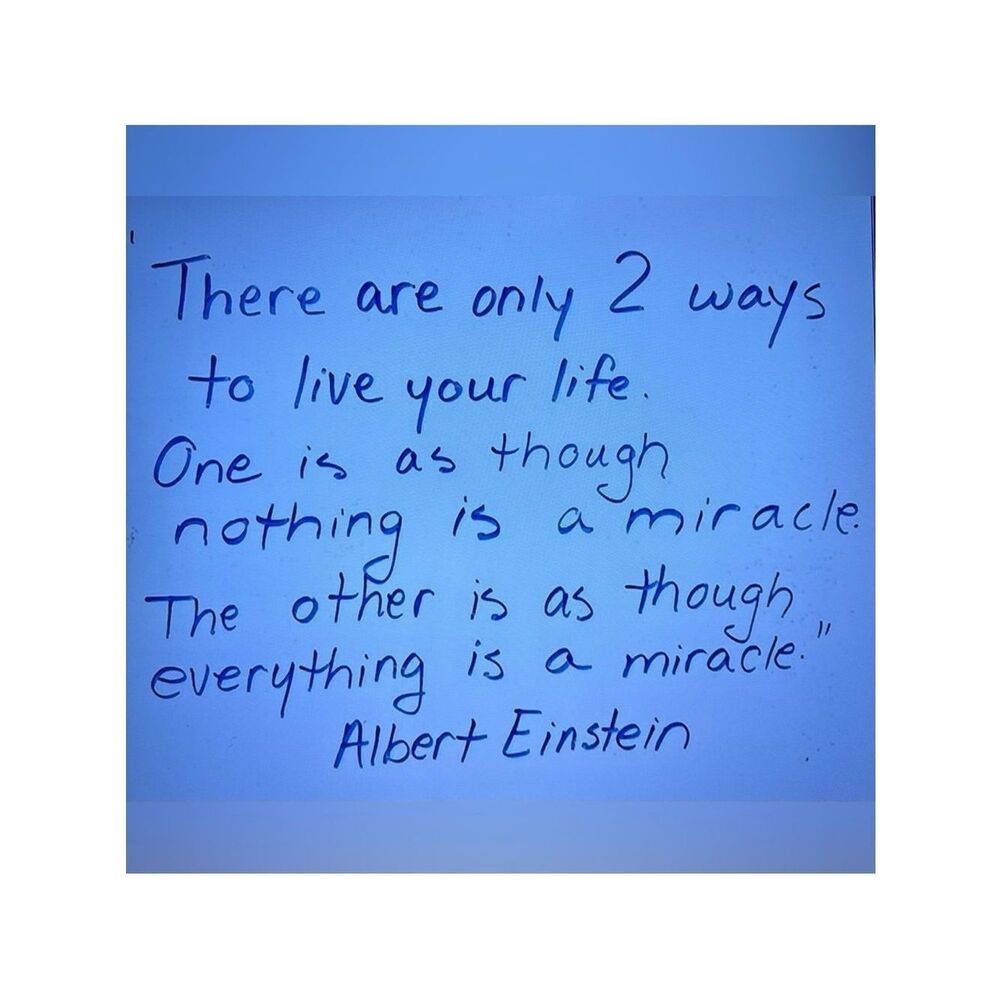 There are only 2 ways
to live your life.
One is as though
nothing is a miracle.
The other is as though
everything is a miracle."
Albert Einstein